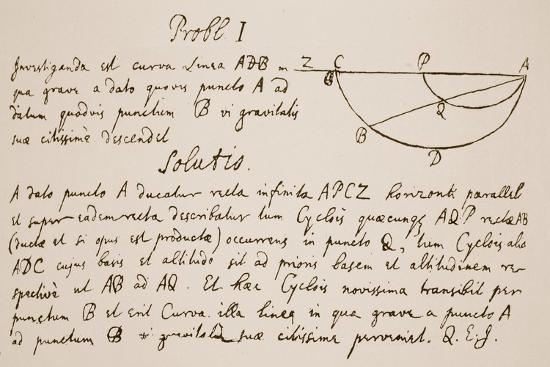 Probl. I
Investiganda est curva Linea ADB in
qua grave a dato quovis puncto A ad
datum quodvis punctum B vi gravitatis
suæ citissimè descendet
Z C P A
B Q D
Solutio.
A dato puncto A ducatur recta infinita APCZ horizonti parallela
et super eadem recta describatur tum Cyclois quæcunq; AQP rectæ AB
(ductæ et si opus est productæ) occurrens in puncto Q, tum Cyclois alia
ADC cujus basis et altitudo sit ad prioris basem et altitudinem re-
spectivè ut AB ad AQ. Et hæc Cyclois novissima transibit per
punctum B et erit Curva illa linea in qua grave a puncto A
ad punctum B vi gravitatis suæ citissime perveniet. Q.E.I.